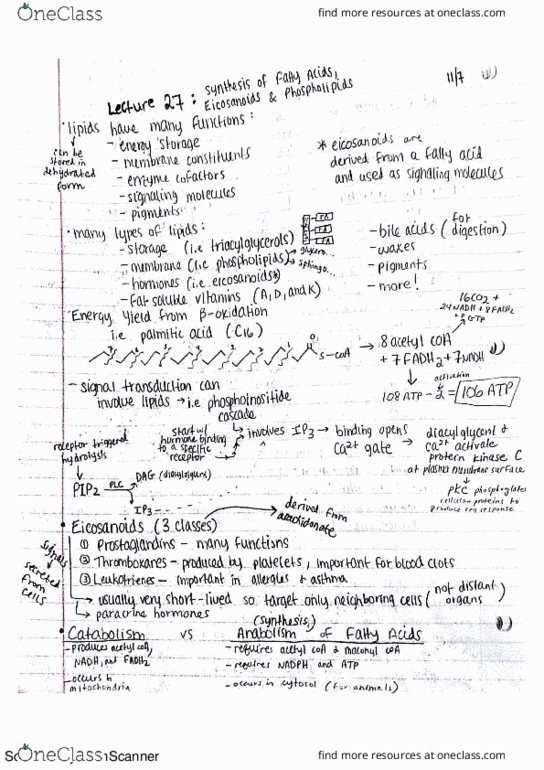 OneClass
find more resources at oneclass.com
Lecture 27: Synthesis of Fatty Acids,
Eicosanoids & Phospholipids
11/7
• lipids have many functions:
can be
stored in
dehydrated
form
- energy storage
- membrane constituents
- enzyme cofactors
- signaling molecules
- pigments
* eicosanoids are
derived from a fatty acid
and used as signaling molecules
• many types of lipids:
- storage (i.e triacylglycerols)
FA
FA
FA
- membrane (i.e phospholipids)
glycero..
sphingo..
- hormones (i.e. eicosanoids*)
- Fat soluble vitamins (A, D, and K)
- bile acids (for digestion)
- waxes
- pigments
- more!
• Energy Yield from β-oxidation
i.e palmitic acid (C16)
S-CoA → 8 acetyl CoA
+ 7FADH2 + 7NADH
16CO2 +
24NADH + 8FADH2
GTP
activation
108 ATP - 2 = 106 ATP
- signal transduction can
involve lipids → i.e phosphoinositide
cascade
receptor triggered
hydrolysis
start w/
hormone binding
to a specific
receptor
involves IP3 → binding opens
Ca2+ gate
→ diacylglycerol &
Ca2+ activate
protein kinase C
at plasma membrane surface
PKC phosphorylates
cellular proteins to
produce response
PIP2 PLC
DAG (diacylglycerol)
IP3
• Eicosanoids (3 classes)
derived from
arachidonate
signals
secreted
from
cells
① Prostaglandins - many functions
② Thromboxanes - produced by platelets, important for blood clots
③ Leukotrienes - important in allergies & asthma
→ usually very short-lived so target only neighboring cells (not distant
organs)
→ paracrine hormones
• Catabolism vs Anabolism of Fatty Acids
(synthesis)
- produces acetyl coA,
NADH, and FADH2
- requires acetyl coA & malonyl coA
- requires NADPH and ATP
- occurs in
mitochondria
- occurs in cytosol (for animals)
OneClass
Scanner
find more resources at oneclass.com